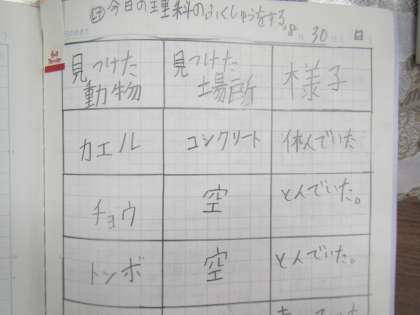 今日の理科のふくしゅうをする。
8 30 日
見つけた動物 見つけた場所 様子
カエル コンクリート 休んでいた
チョウ 空 とんでいた。
トンボ 空 とんでいた。